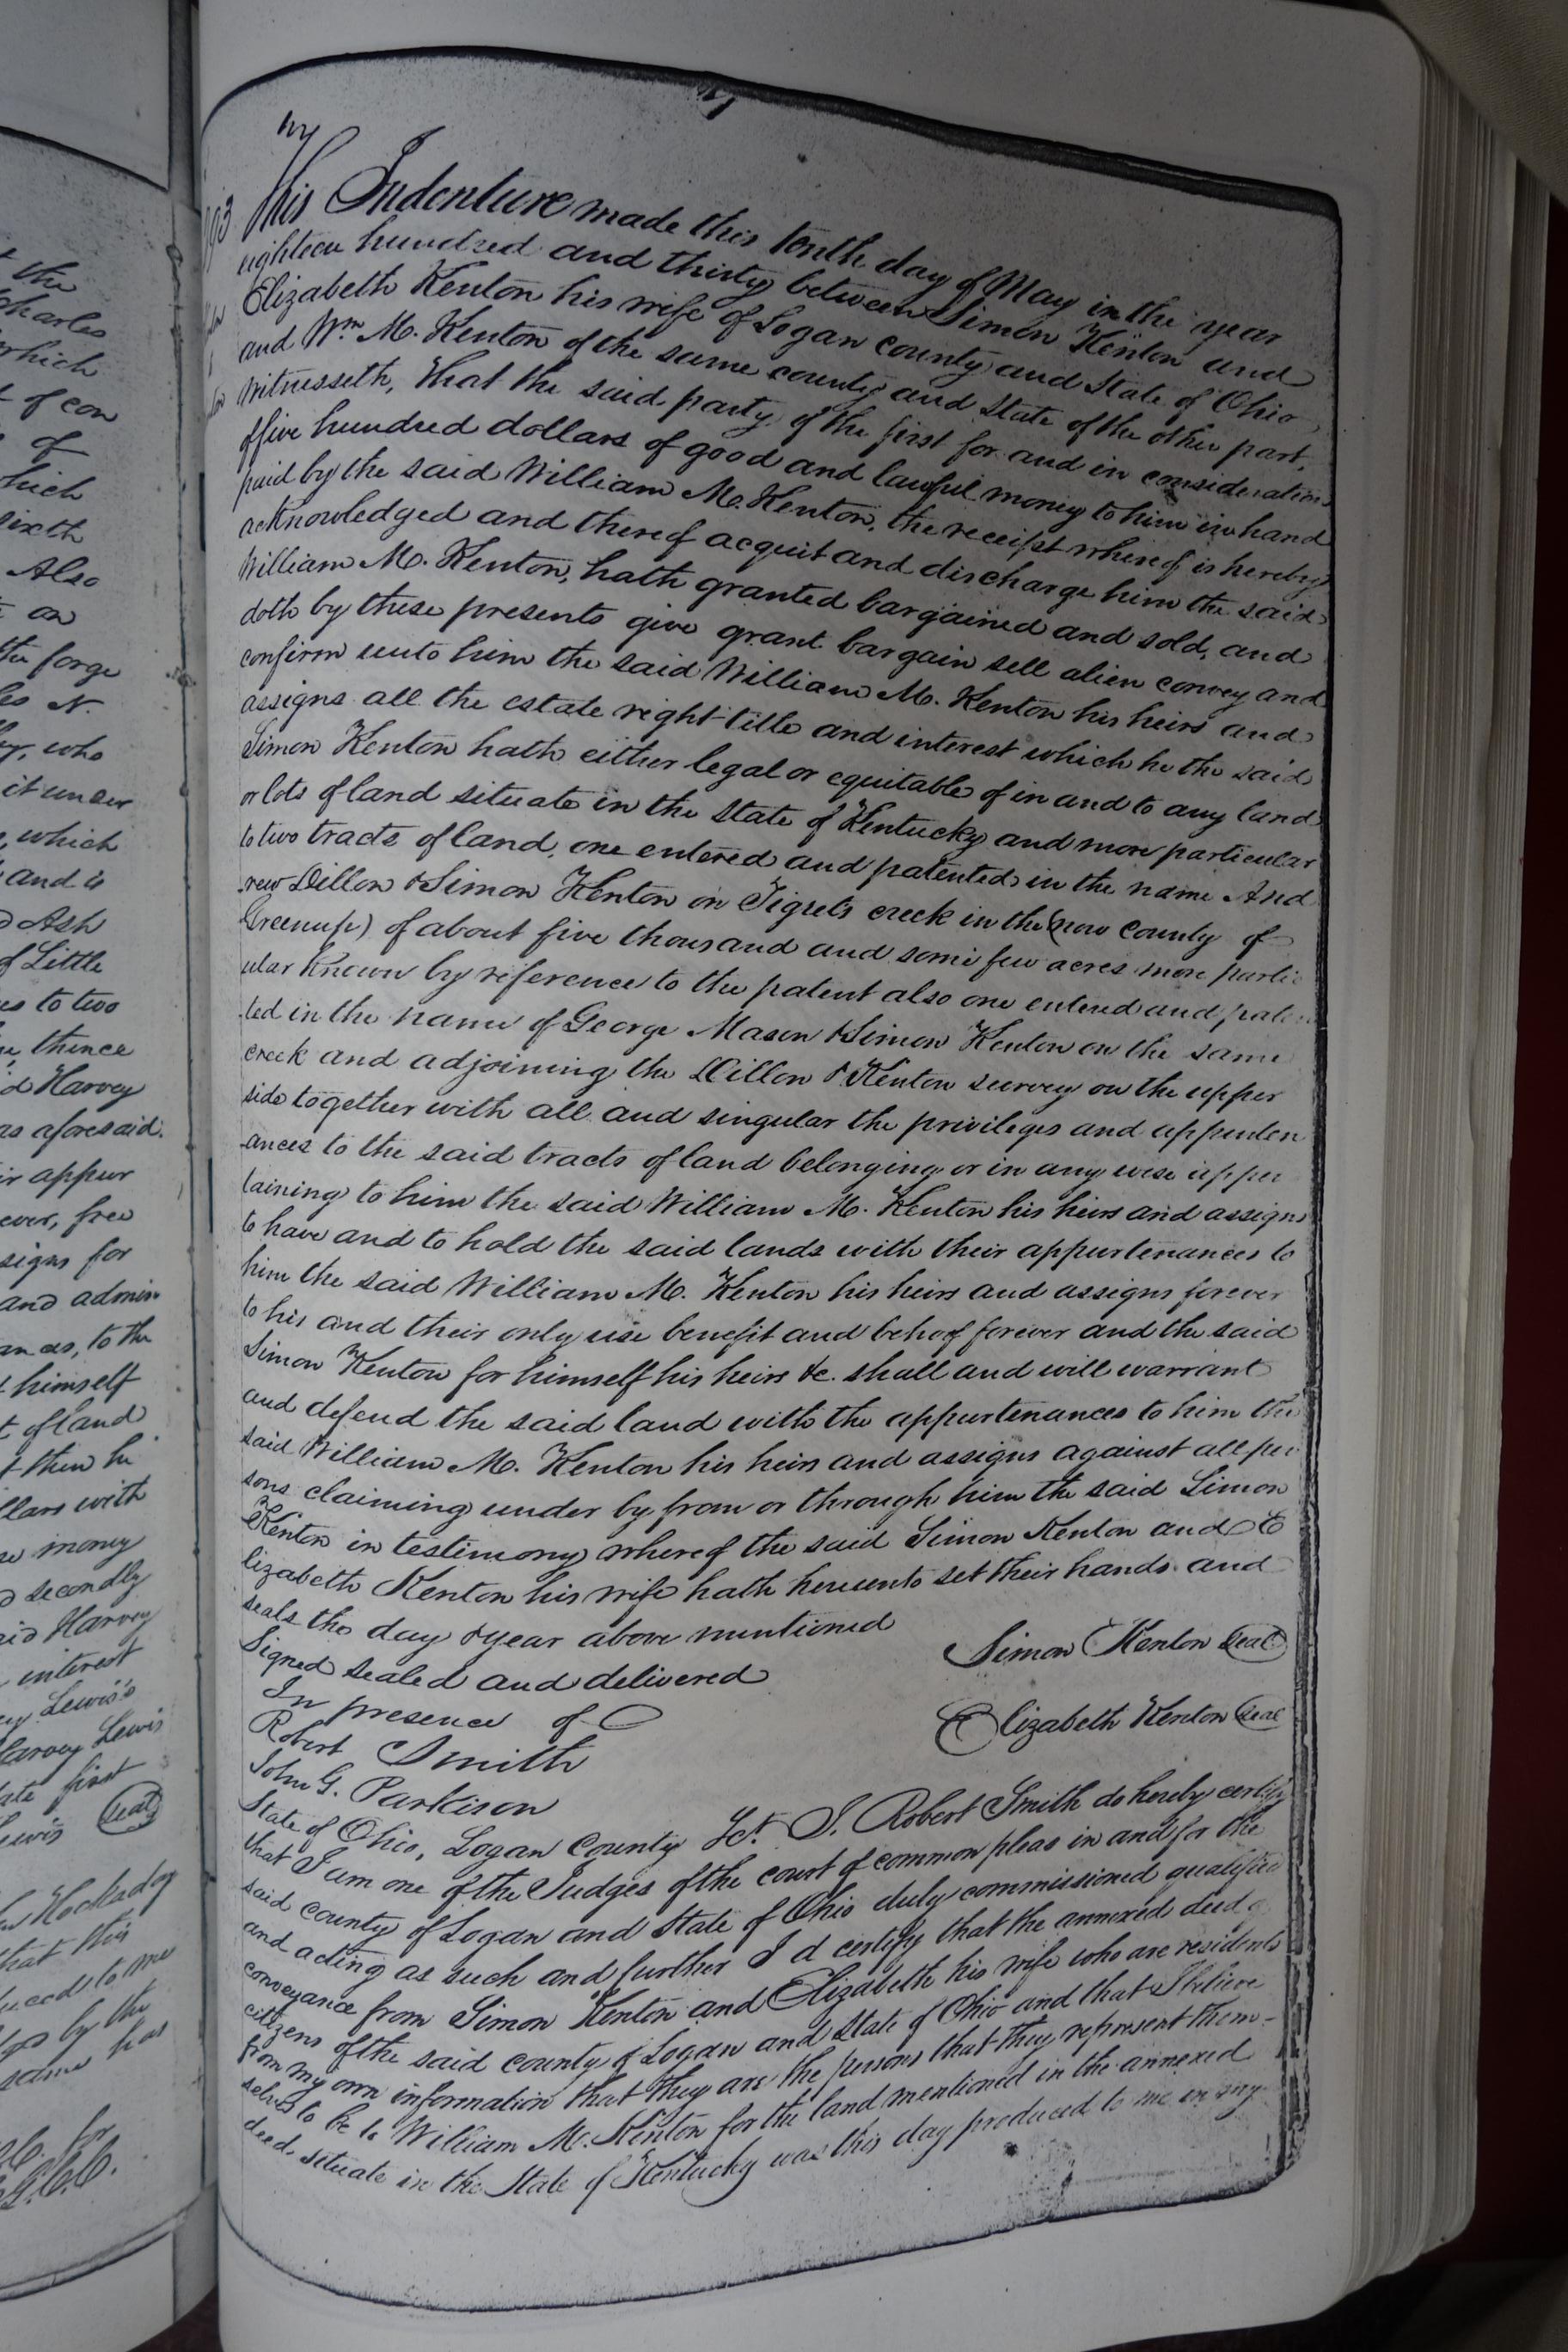 the
Charles
which
t of con
of
hich
Also
on
the forge
N.
who
it under
which
and is
Ash
of Little
to two
thence
Harvey
as aforesaid.
appur
ever, free
signs for
and admin
an ces, to the
himself
t of land
then he
llars with
money
secondly
Harvey
interest
Lewis's
Harvey Lewis
first
Lewis Seal
Hockaday
that this
duced to me
by the
same has
for
193
This Indenture made this tenth day of May in the year
eighteen hundred and thirty between Simon Kenton and
Elizabeth Kenton his wife of Logan county and State of Ohio
and Wm. M. Kenton of the same county and State of the other part,
Witnesseth, That the said party of the first for and in consideration
of five hundred dollars of good and lawful money to him in hand
paid by the said William M. Kenton, the receipt whereof is hereby
acknowledged and thereof acquit and discharge him the said
William M. Kenton, hath granted bargained and sold, and
doth by these presents give grant bargain sell alien convey and
confirm unto him the said William M. Kenton his heirs and
assigns all the estate right title and interest which he the said
Simon Kenton hath either legal or equitable of in and to any land
or lots of land situate in the State of Kentucky and more particular
to two tracts of land, one entered and patented in the name And
rew Dillon & Simon Kenton on Tigrets creek in the (now County of
Greenup) of about five thousand and some few acres more partic
ular known by reference to the patent also one entered and paten
ted in the name of George Mason & Simon Kenton on the same
creek and adjoining the Dillon & Kenton survey on the upper
side together with all and singular the privileges and appurten
ances to the said tracts of land belonging or in any wise apper
taining to him the said William M. Kenton his heirs and assigns
to have and to hold the said lands with their appurtenances to
him the said William M. Kenton his heirs and assigns forever
to his and their only use benefit and behoof forever and the said
Simon Kenton for himself his heirs &c. shall and will warrant
and defend the said land with the appurtenances to him the
said William M. Kenton his heirs and assigns against all per
sons claiming under by from or through him the said Simon
Kenton in testimony whereof the said Simon Kenton and E
lizabeth Kenton his wife hath hereunto set their hands and
seals the day & year above mentioned
Signed sealed and delivered Simon Kenton Seal
In presence of
Robert Smith Elizabeth Kenton Seal
John G. Parkison
State of Ohio, Logan County Sct. I. Robert Smith do hereby certify
that I am one of the Judges of the court of common pleas in and for the
said county of Logan and State of Ohio duly commissioned qualified
and acting as such and further I d certify that the annexed deed o
conveyance from Simon Kenton and Elizabeth his wife who are residents
citizens of the said county of Logan and State of Ohio and that I believe
from my own information that they are the persons that they represent them-
selves to be to William M. Kenton for the land mentioned in the annexed
deed situate in the State of Kentucky was this day produced to me in my